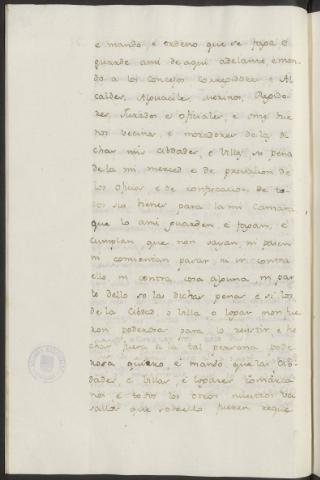 e mando e ordeno que se faga e
guarde ansi de aqui adelante, e man-
do a los concejos correjidores e Al
caldes, Alguaciles, merinos, Rejido-
res, Jurados e oficiales, e omes bue
nos vecinos e moradores de las di
chas mis cibdades, e Villas so pena
de la mi merced e de privacion de
los oficios e de confiscacion de to-
dos sus bienes para la mi camara
que lo ansi guarden, e fagan, e
cumplan que non vayan ni pasen
ni consientan pasar ni ir contra
ello ni contra cosa alguna ni par
te dello so las dichas penas e si los
de la Cibdad, o Villa o logar non fue
ren poderosos para lo resistir e he
char fuera a la tal persona pode
rosa quiero, e mando que las Cib-
dades, e Villas, e logares comarca
nos e todos los otros nuestros va
sallos que sobrello fueren reque